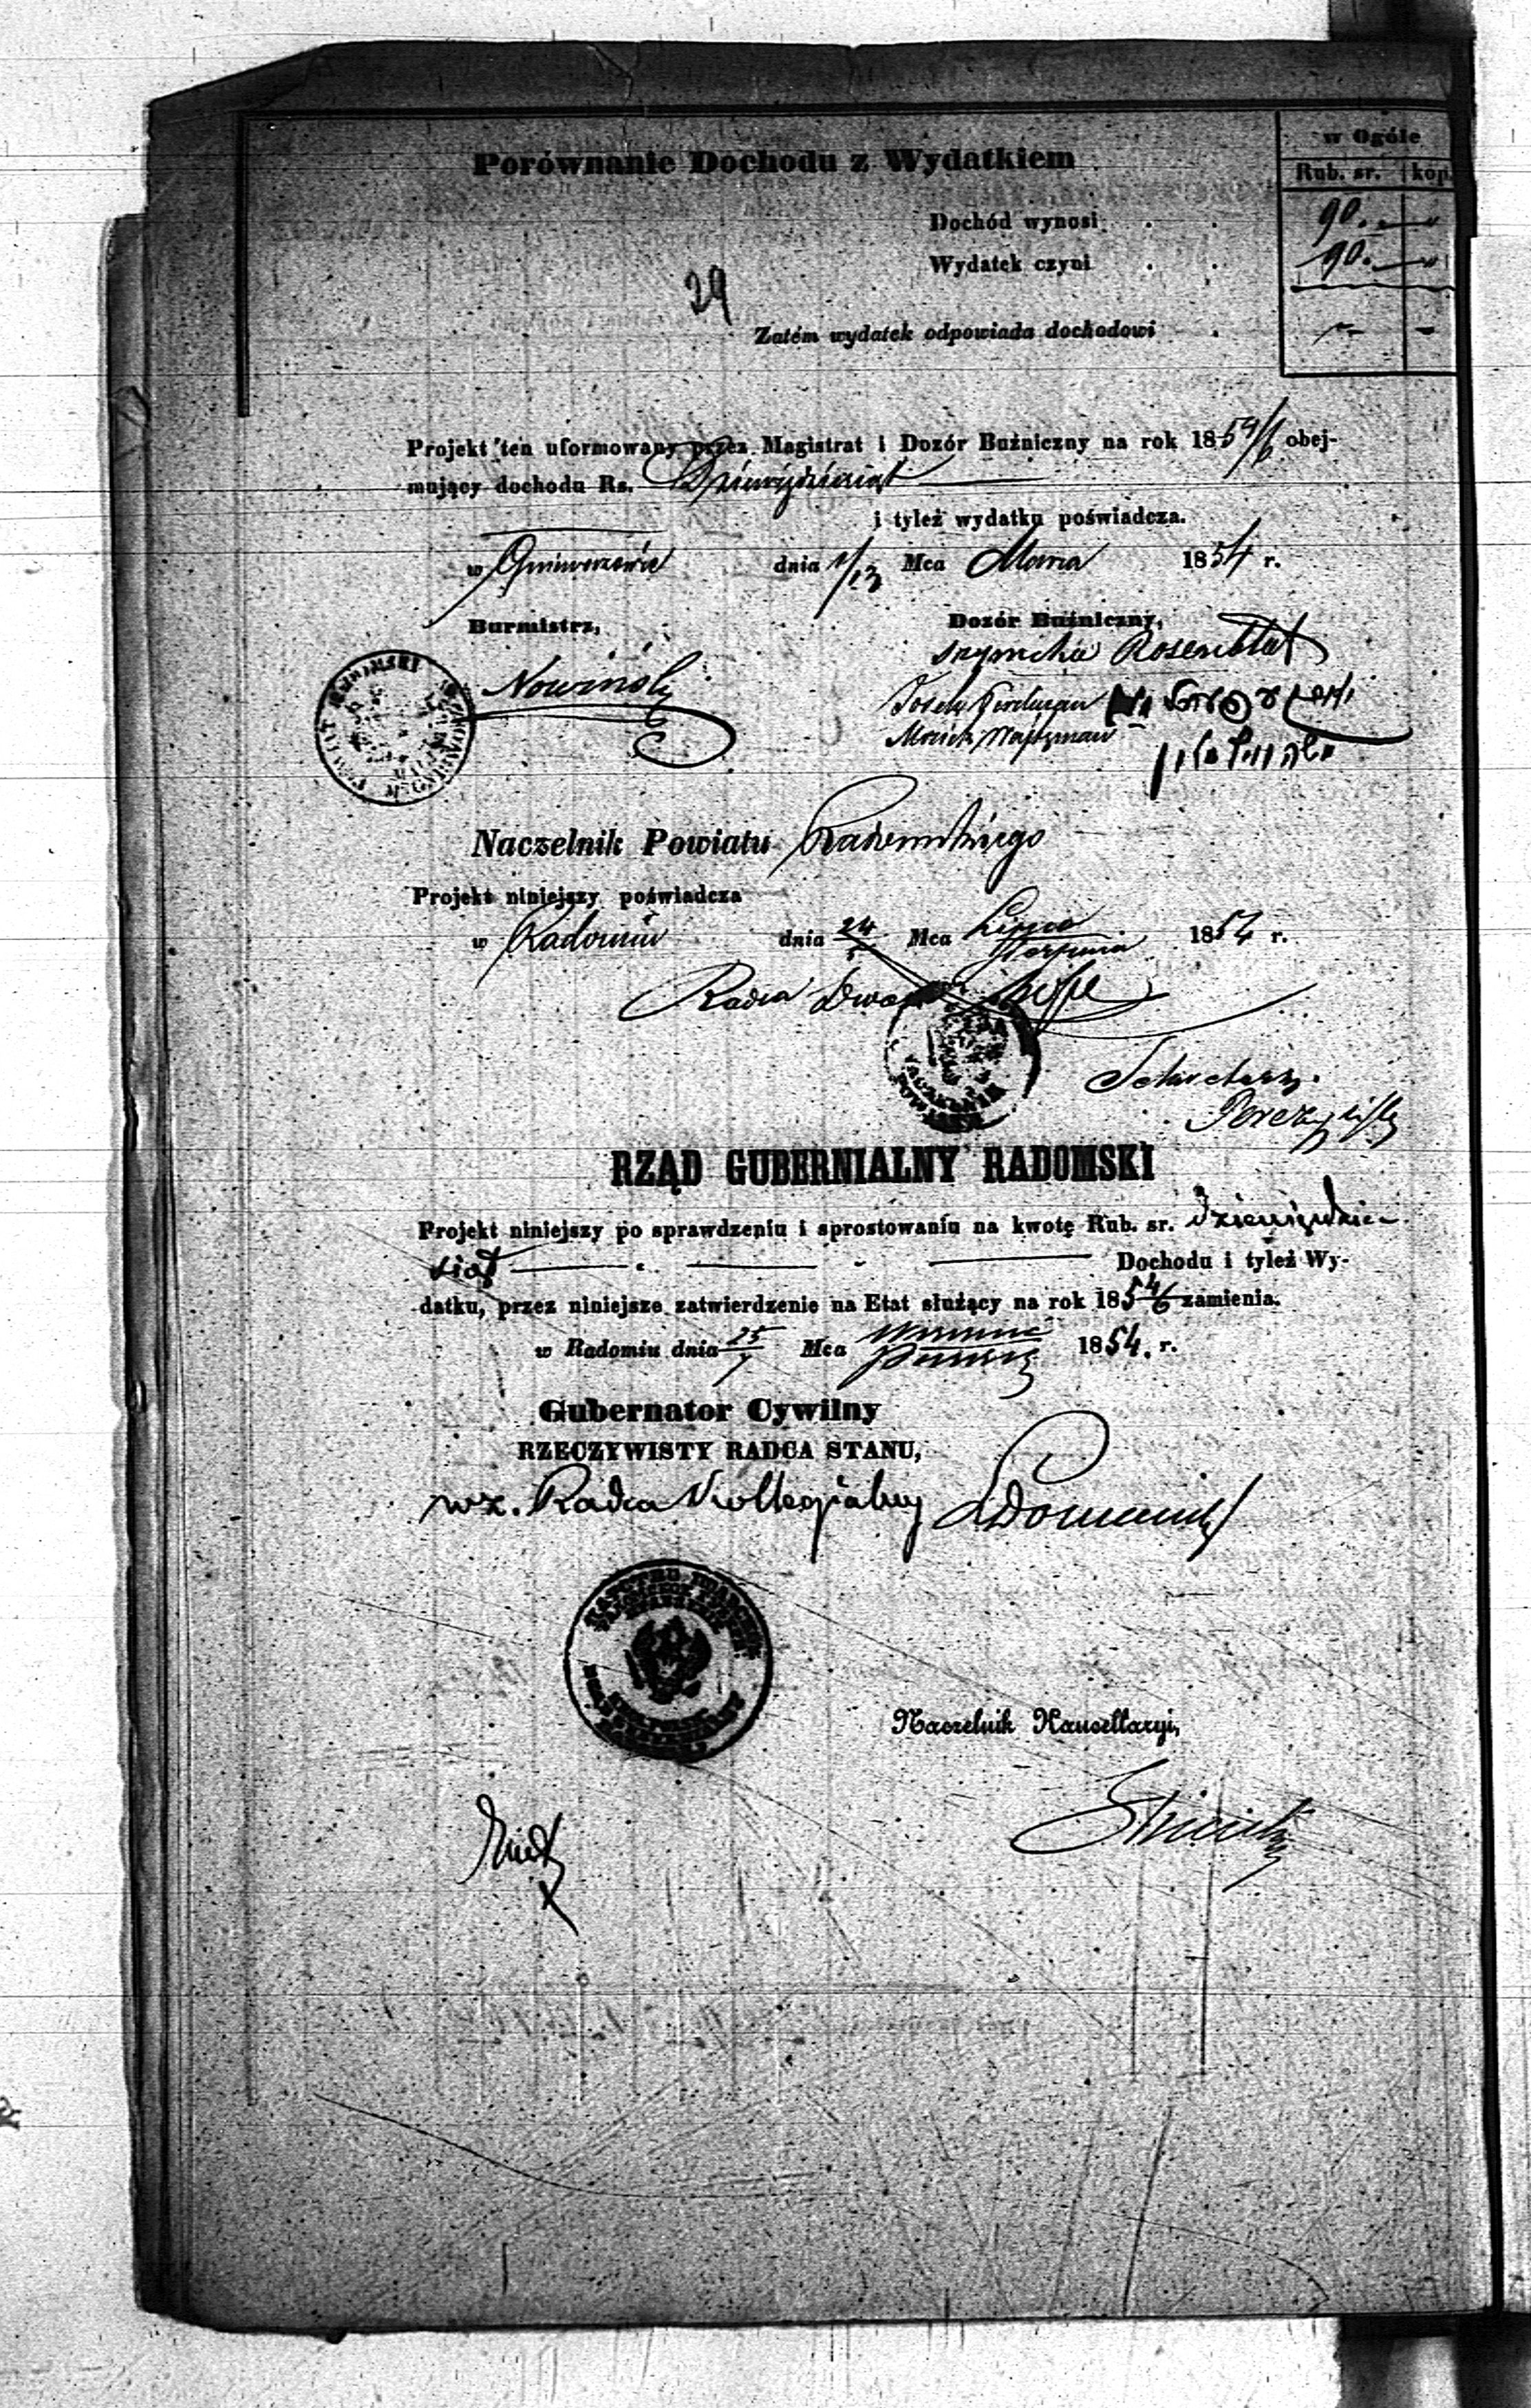 w Ogóle
Porównanie Dochodu z Wydatkiem
Rub. sr. kop.
Dochód wynosi 90. "
Wydatek czyni 90. "
29
Zatém wydatek odpowiada dochodowi . - -
Projekt ten uformowany przez Magistrat i Dozór Bużniczny na rok 1854/6 obej-
mujący dochodu Rs. Dziewięćdziesiąt
i tyleż wydatku poświadcza.
w Gniewoszowie dnia 1/13 Mca Marca 1854 r.
Burmistrz,
Dozór Bużniczny,
Nowiński
Rosenblat
Naczelnik Powiatu Radomskiego
Projekt niniejszy poświadcza
w Radomiu dnia 24/5 Mca Lipca/Sierpnia 1854 r.
Radca Dworu
Sekretarz
RZĄD GUBERNIALNY RADOMSKI
Projekt niniejszy po sprawdzeniu i sprostowaniu na kwotę Rub. sr. dziewięćdzie-
siąt Dochodu i tyleż Wy-
datku, przez niniejsze zatwierdzenie na Etat służący na rok 1854/6 zamienia.
w Radomiu dnia 25/7 Mca 1854. r.
Gubernator Cywilny
RZECZYWISTY RADCA STANU,
wz. Radca Kollegialny
Naczelnik Kancellaryi,